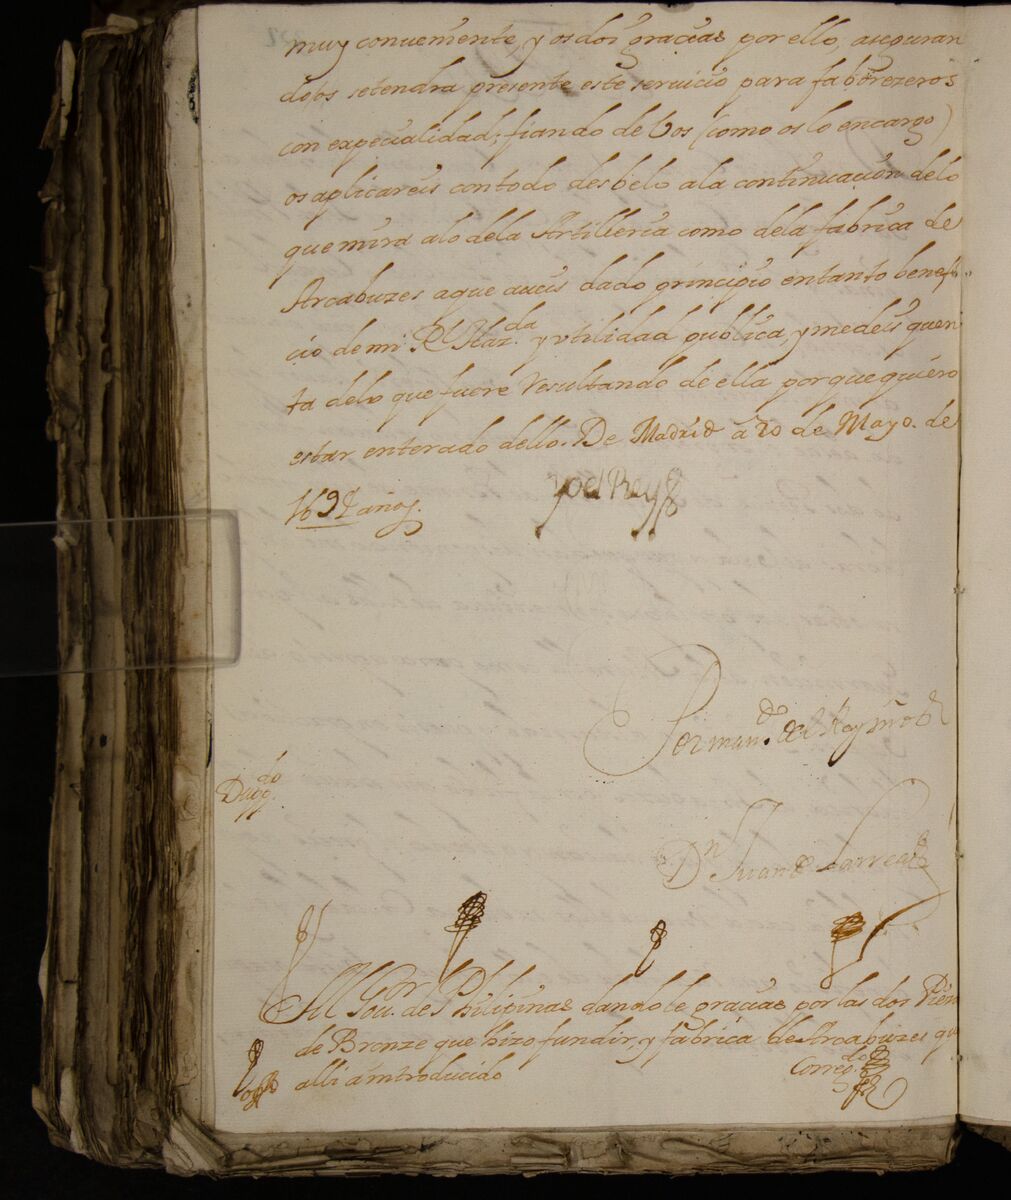 muy conueniente, y os doi graçias por ello, aseguran
doos setendra presente este seruicio para faborezeros
con expecialidad; fiando de Vos (como os lo encargo)
os aplicareis contodo desbelo ala continuaçion delo
que mira alo dela Artilleria como dela fabrica de
Arcabuzes aque aueis dado principio entanto benefi
cio de mi Rl Hazda y vtilidad publica, y medeis quen
ta delo que fuere Resultando de ella porque quiero
estar enterado dello. De Madrid à 20 de Mayo. de
169 años.
yo el Rey
Por mando. del Rey nro Sr
Dupdo
Dn Juan de Larrea
Al Gour. de Philipinas dandole graçias por las dos Pieças
de Bronze que hizo fundir, y fabrica de Arcabuzes que
alli à introducido
Corregdo